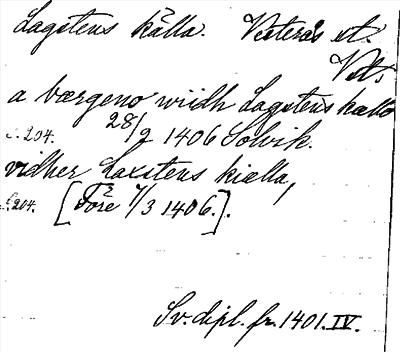 Lagstens källa. Vesterås st.
Vstm.
a bærgeno wiidh Lagstens kællo
s. 204. 28/2 1406 Solvik.
vidher Laxstens kiælla,
s. 204. [Före 7/3 1406.].
Sv. dipl. fr. 1401. IV.